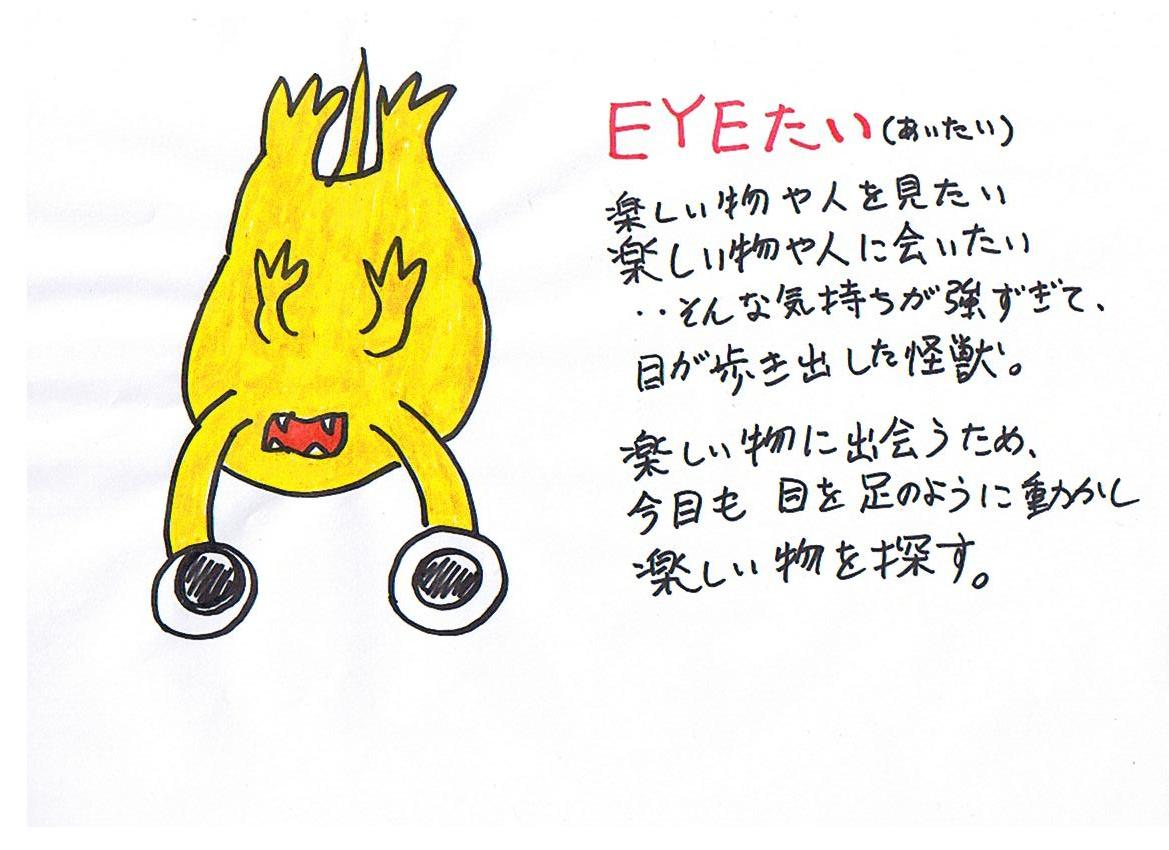 EYEたい(あいたい)
楽しい物や人を見たい
楽しい物や人に会いたい
‥そんな気持ちが強ずぎて、
目が歩き出した怪獣。
楽しい物に出会うため、
今日も 目を足のように動かし
楽しい物を探す。